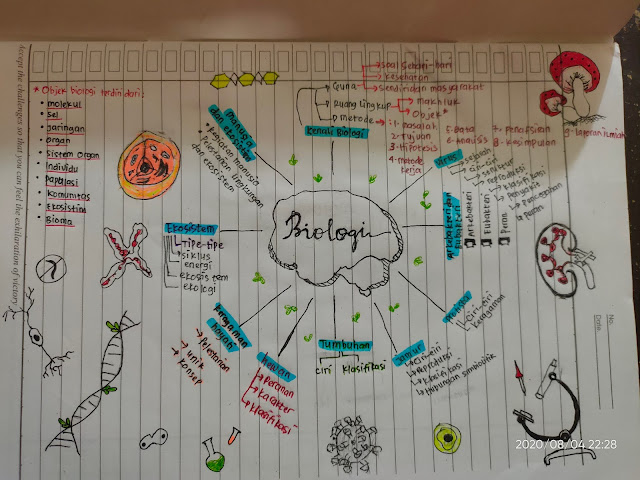 Accept the challenges so that you can feel the exhilaration of victory
* Objek biologi terdiri dari:
• molekul
• sel
• jaringan
• organ
• sistem organ
• individu
• populasi
• komunitas
• ekosistem
• Bioma
manusia dan ekosistem
• kegiatan manusia
dan ekosistem
Kenali Biologi
Guna
soal sehari-hari
kesehatan
sendiri dan masyarakat
Ruang lingkup
makhluk
objek
metode
1. masalah
2. tujuan
3. Hipotesis
4. metode kerja
6. Analisis
7. Penafsiran
8. Kesimpulan
9. laporan ilmiah
Virus
sejarah
ciri-ciri
struktur
reproduksi
klasifikasi
Penyakit
Pencegahan
Peran
Arkebakteri
Eubakteri
Peran
Protista
Ciri-ciri
Keragaman
Jamur
Ciri-ciri
Reproduksi
klasifikasi
Hubungan simbiotik
Tumbuhan
Ciri klasifikasi
Hewan
Peranan
Karakter
klasifikasi
Keragaman hayati
Pelestarian
unik
konsep
Ekosistem
tipe-tipe
siklus
energi
ekosistem
ekologi
Biologi
No.
Date
2020/08/04 22:28